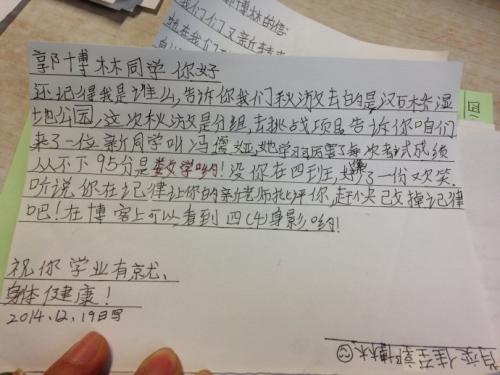 郭博林的信
我们们又新转来
郭博林同学你好
还记得我是谁么,告诉你我们秋游去的是汉石桥湿
地公园,这次秋游是分组,去挑战项目告诉你咱们
来了一位新同学叫冯儇娅,她学习厉害了每次考试成绩
从不下95分是数学哟!没你在四班,好像了一份欢笑.
听说你在记律让你的新老师批评你,赶快己改掉记律
吧!在博客上可以看到四(4)身影哟!
祝你学业有就尤、
身体健康!
2014.12.19日写
肖奕佳至郭博林